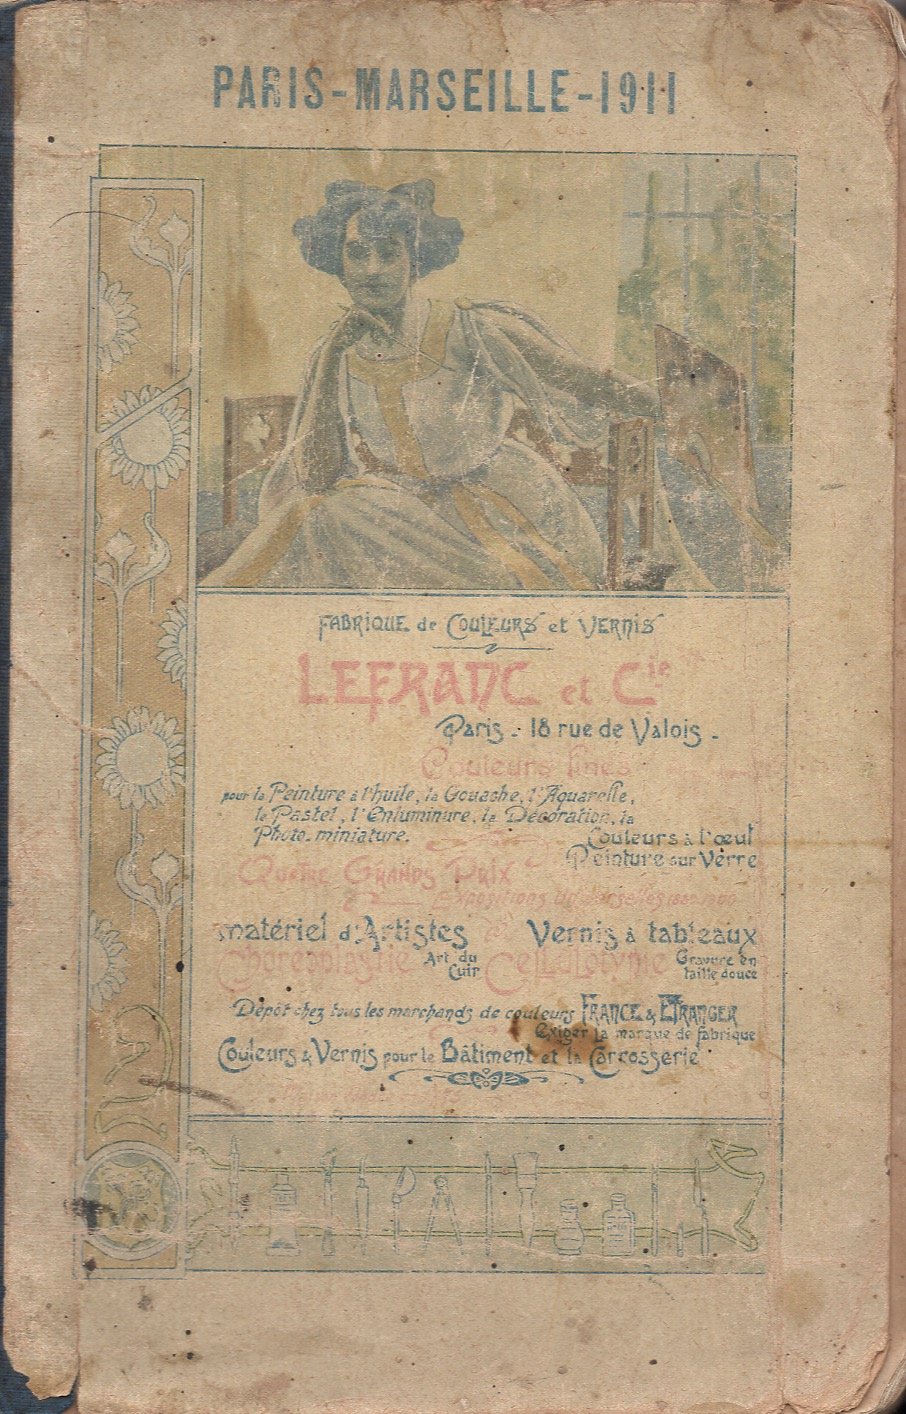 PARIS-MARSEILLE-1911
FABRIQUE de COULEURS et VERNIS
LEFRANC et Cie
Paris - 18 rue de Valois -
Couleurs fines
pour la Peinture à l'huile, la Gouache, l'Aquarelle,
le Pastel, l'Enluminure, la Décoration, la
Photo-miniature.
Couleurs à l'œuf
Peinture sur Verre
Quatre Grands Prix
Expositions Universelles 1900
matériel d'Artistes
Vernis à tableaux
Choréoplastie
Art du
Cuir
Cellulotypie
Gravure en
taille douce
Dépôt chez tous les marchands de couleurs FRANCE & ETRANGER
Exiger la marque de fabrique
Couleurs & Vernis pour le Bâtiment et la Carrosserie